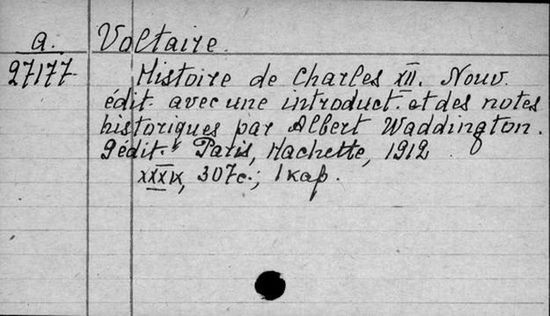 a. Voltaire.
27177 Histoire de Charles XII. Nouv.
édit. avec une introduct. et des notes
historiques par Albert Waddington.
9édit. Paris, Hachette, 1912
XXXIX, 307с.; 1 кар.